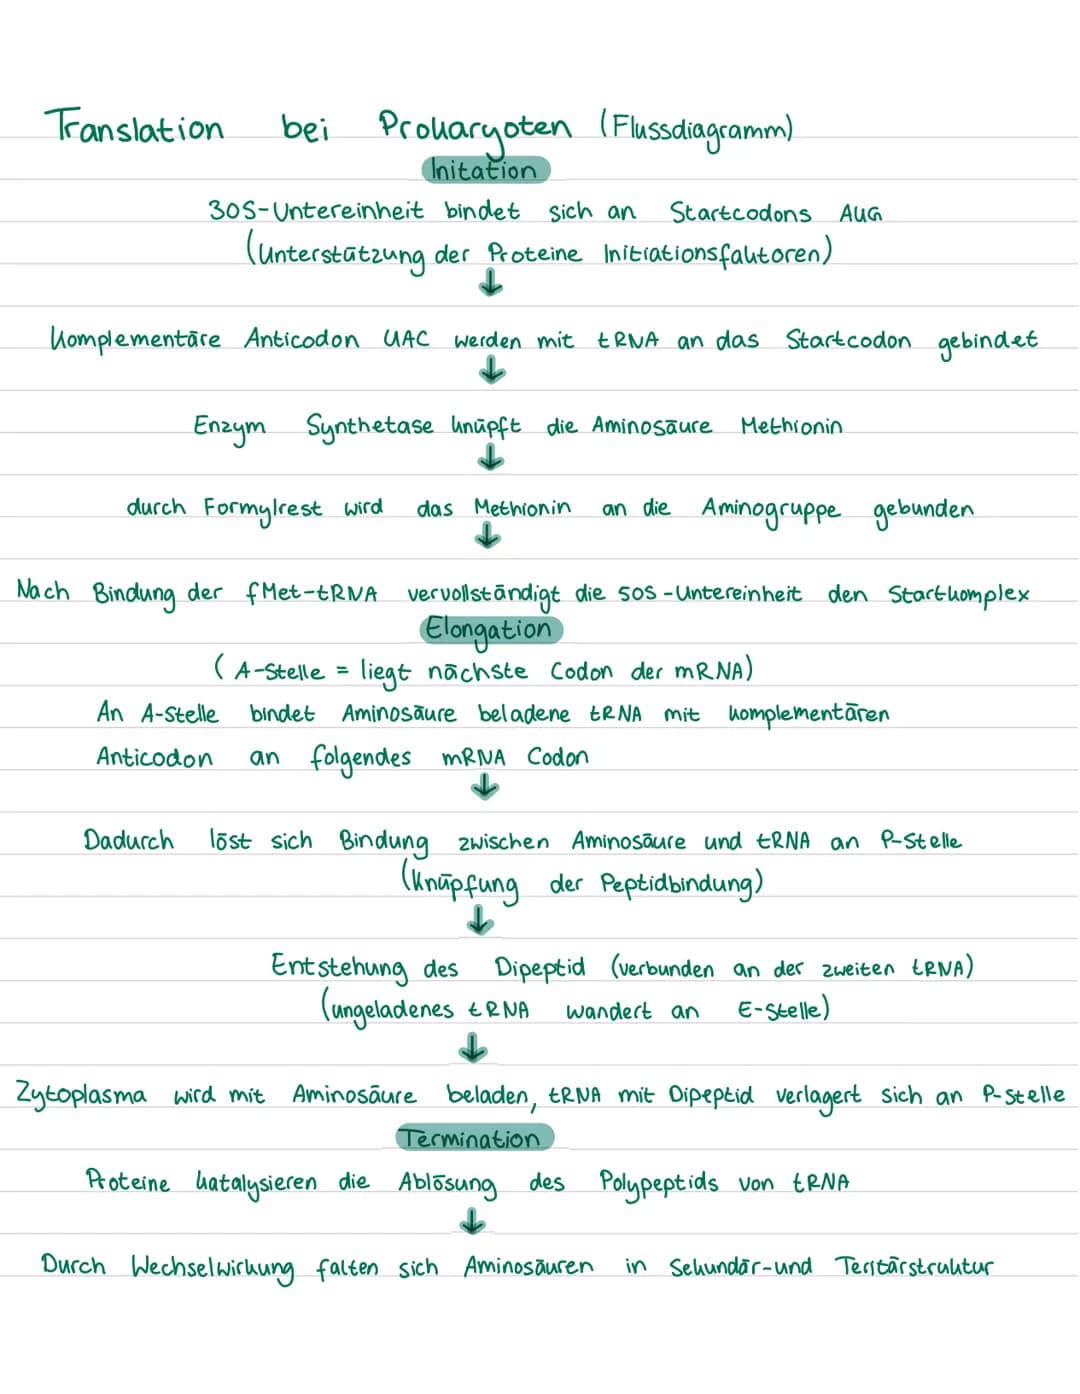 Translation bei Prokaryoten (Flussdiagramm)
Initation
30S-Untereinheit bindet sich an Startcodons AUG
(Unterstützung der Proteine Initiationsfaktoren)
↓
Komplementäre Anticodon UAC werden mit tRNA an das Startcodon gebindet
↓
Enzym Synthetase knüpft die Aminosäure Methionin
↓
durch Formylrest wird das Methionin an die Aminogruppe gebunden
↓
Nach Bindung der fMet-tRNA vervollständigt die 50S-Untereinheit den Startkomplex
Elongation
(A-Stelle = liegt nächste Codon der mRNA)
An A-Stelle bindet Aminosäure beladene tRNA mit komplementären
Anticodon an folgendes mRNA Codon
↓
Dadurch löst sich Bindung zwischen Aminosäure und tRNA an P-Stelle
(Knüpfung der Peptidbindung)
↓
Entstehung des Dipeptid (verbunden an der zweiten tRNA)
(ungeladenes tRNA wandert an E-Stelle)
↓
Zytoplasma wird mit Aminosäure beladen, tRNA mit Dipeptid verlagert sich an P-Stelle
Termination
Proteine katalysieren die Ablösung des Polypeptids von tRNA
↓
Durch Wechselwirkung falten sich Aminosäuren in Sekundär-und Teritärstruktur